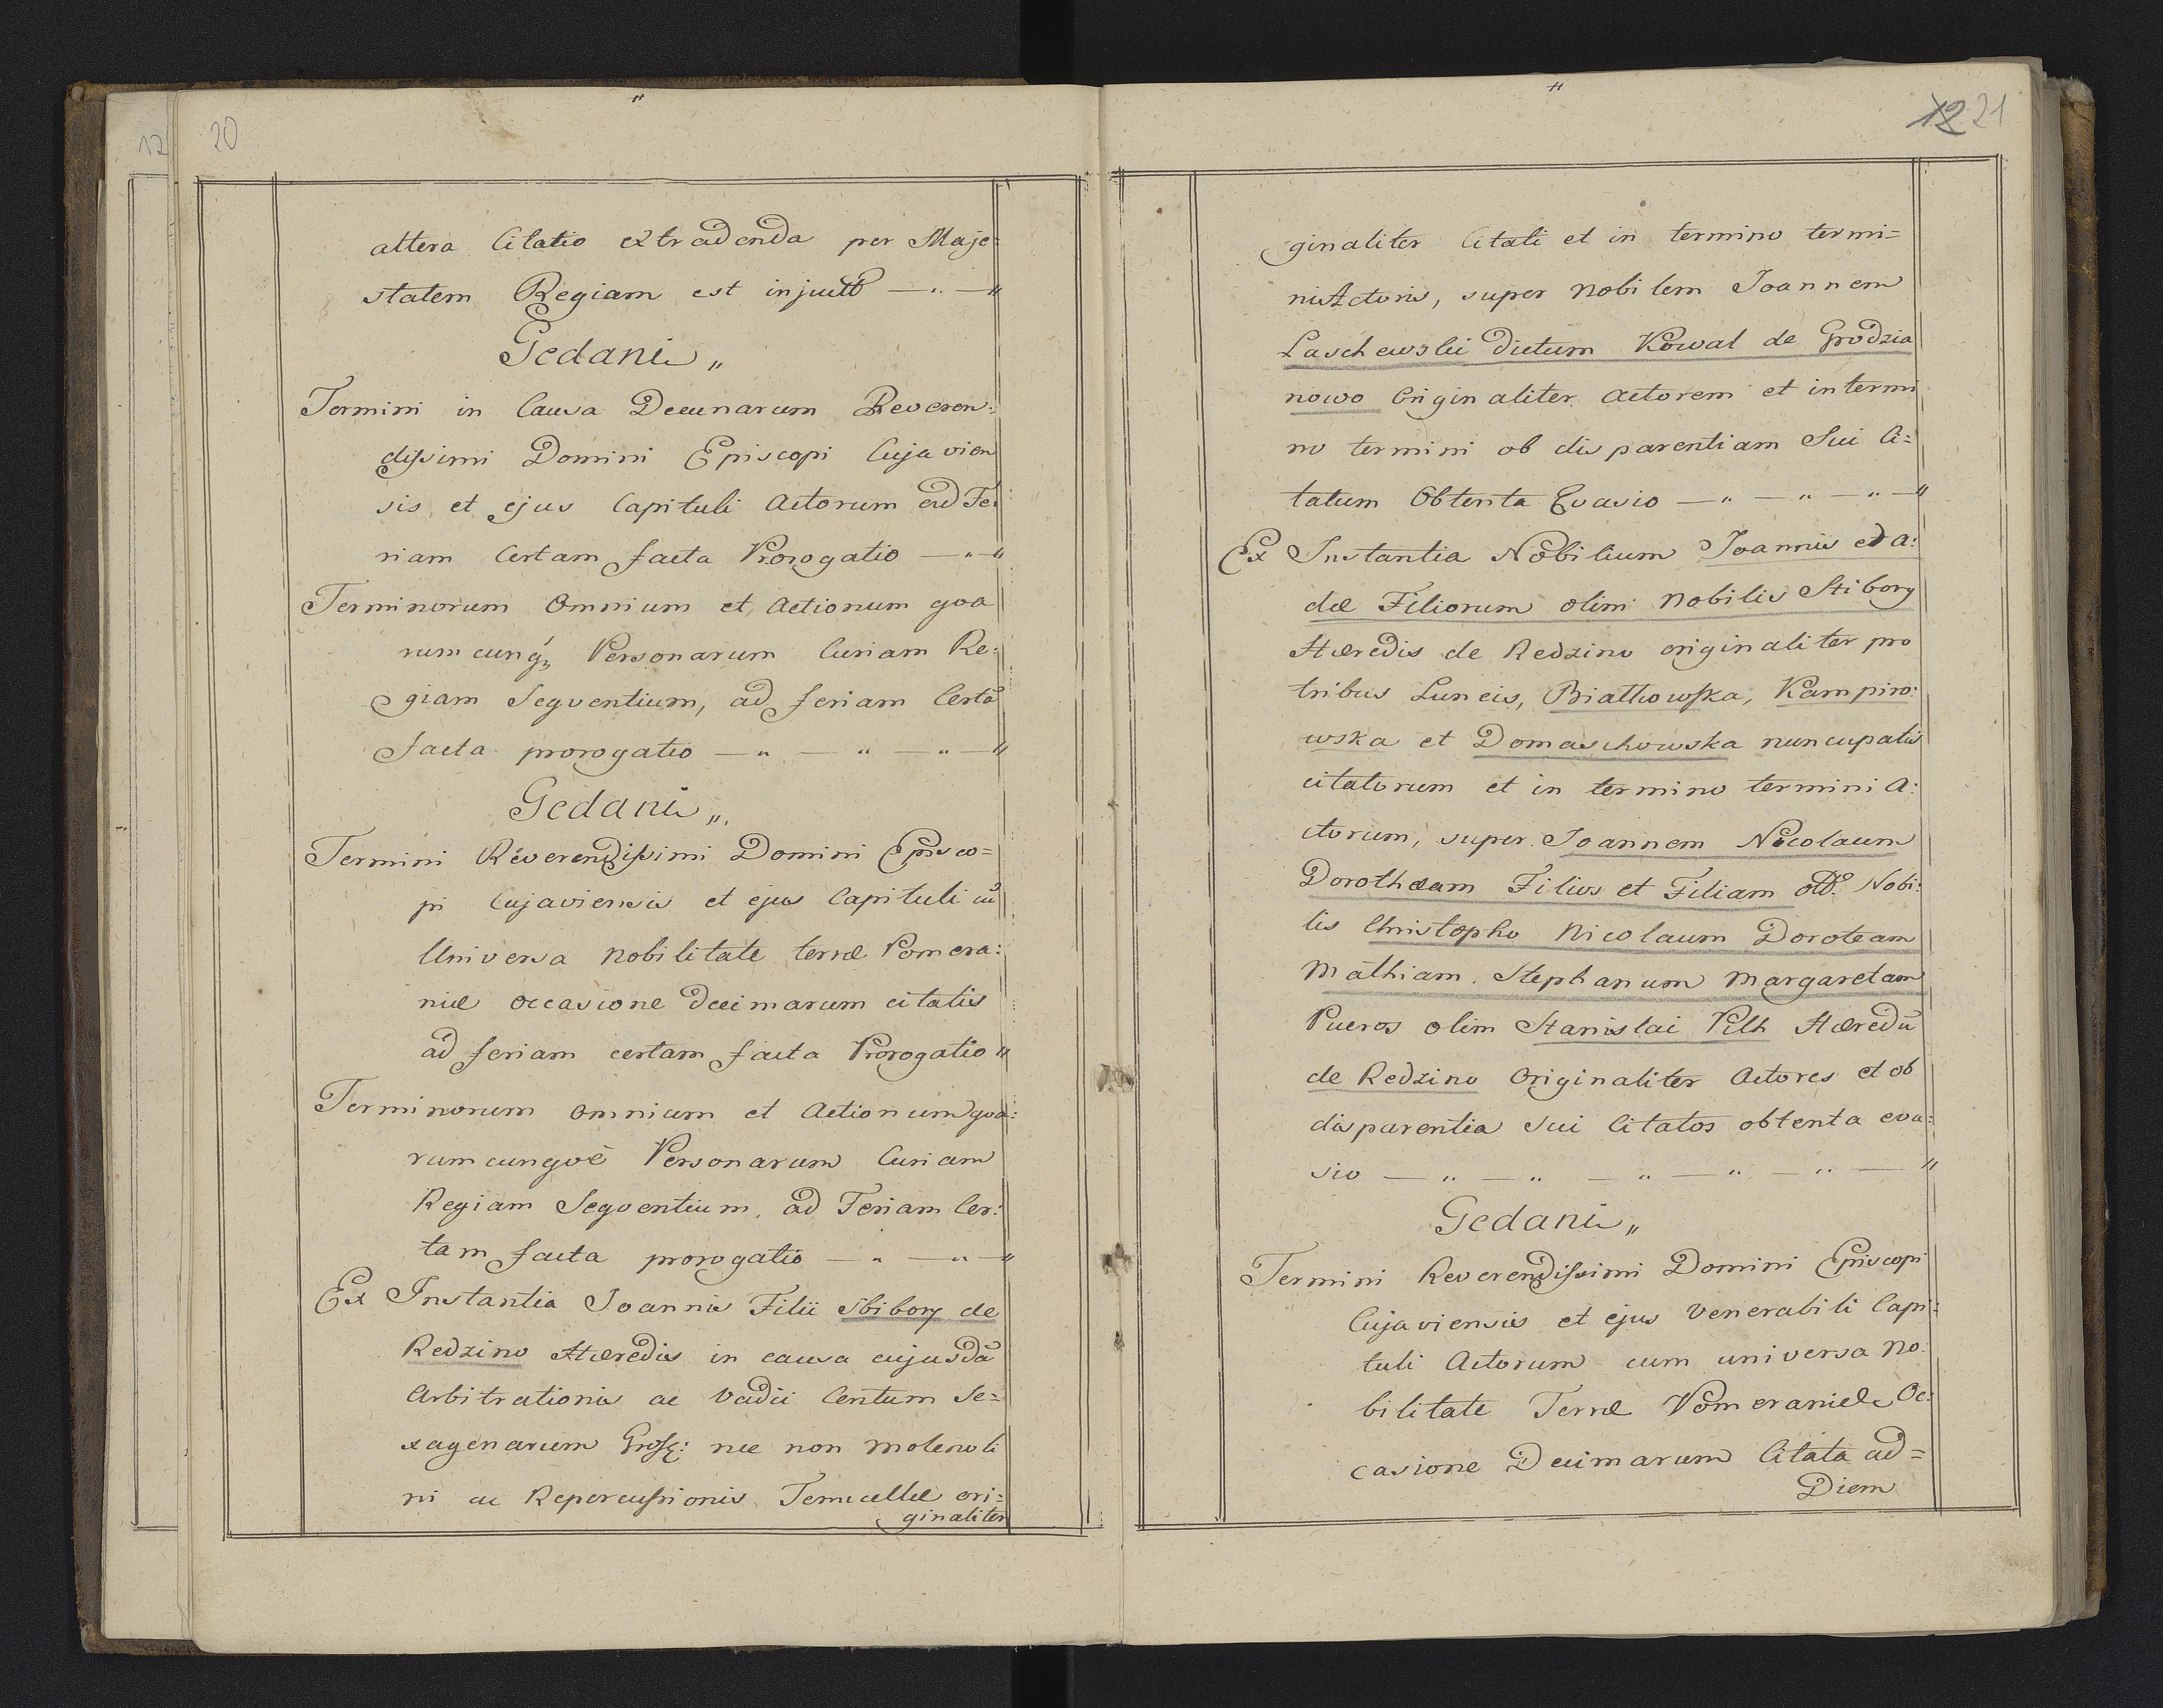 20
altera Citatio extradenda per Maje=
statem Regiam est injuctt — „ — „
Gedani „
Termini in Causa Decimarum Reveren:
dissimi Domini Episcopi Cujavien
sis et ejus Capituli Actorum ad Fe:
riam Certam facta Prorogatio — „ — „
Terminorum Omnium et Actionum qva
rum cunq₃ Personarum Curiam Re:
giam Seqventium, ad feriam Certā
facta prorogatio — „ — „ — „ — „
Gedani „
Termini Reverendissimi Domini Episco=
pi Cujaviensis et ejus Capituli cū
Universa Nobilitate terræ Pomera:
niæ occasione decimarum citatis
ad feriam certam facta Prorogatio „
Terminorum omnium et Actionum qva:
rum cunqve Personarum Curiam
Regiam Seqventium, ad Feriam Cer:
tam facta prorogatio — „ — „ — „
Ex Instantia Joannis Filii Sbibory de
Redzino Hæredis in causa cujusdā
Arbitrationis ac Vadii Centum Se=
xagenarum Gross: nec non Molenoli
ni ac Repercussionis ori=
ginaliter
12 21
ginaliter Citati et in termino termi=
ni Actoris, super Nobilem Joannem
Laschewski dictum Kowal de Grodzia
nowo Originaliter Actorem et in termi
no termini ob disparentiam Sui Ci=
tatum Obtenta Evasio — „ — „ — „ — „
Ex Instantia Nobilium Joannis et A:
dæ Filiorum olim Nobilis Stibory
Hæredis de Redzino originaliter pro
tribus Luneis, Bialkowska, Kampiro:
wska et Domaschowska nuncupatis
citatorum et in termino termini A:
ctorum, super Joannem Nicolaum
Dorothæam Filios et Filiam Nobi:
lis Christopho Nicolaum Doroteam
Mathiam. Stephanum Margaretam
Pueros olim Stanislai Pilh Hæredū
de Redzino Originaliter Actores et ob
disparentia Sui Citatos obtenta eva:
sio — „ — „ — „ — „ — „ — „
Gedani „
Termini Reverendissimi Domini Episcopi
Cujaviensis et ejus Venerabili Capi:
tuli Actorum cum universa No:
bilitate Terræ Pomeraniæ Oc:
casione Decimarum Citata ad=
Diem